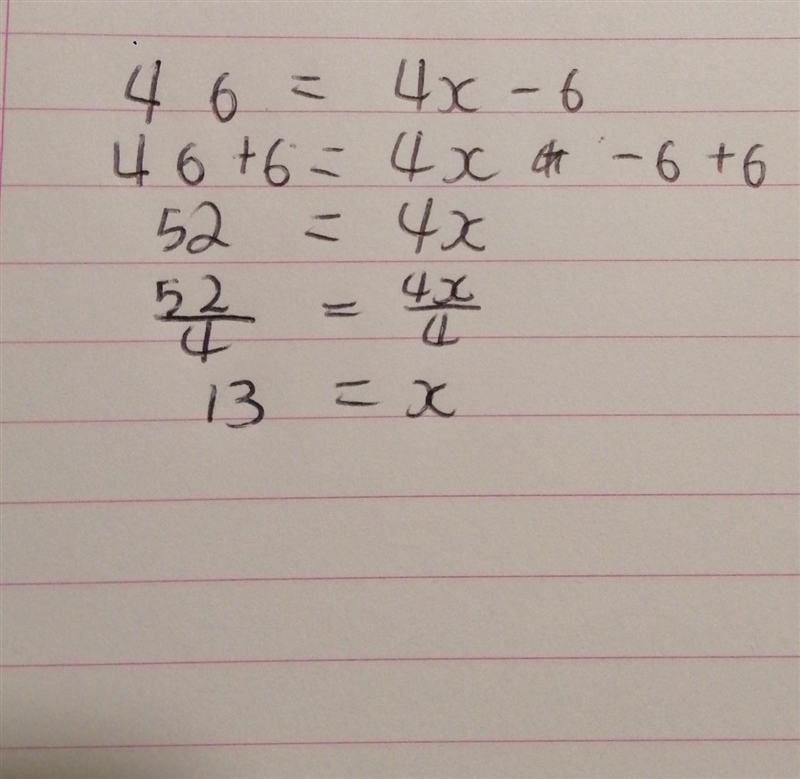 46 = 4x - 6
46 + 6 = 4x - 6 + 6
52 = 4x
52/4 = 4x/4
13 = x